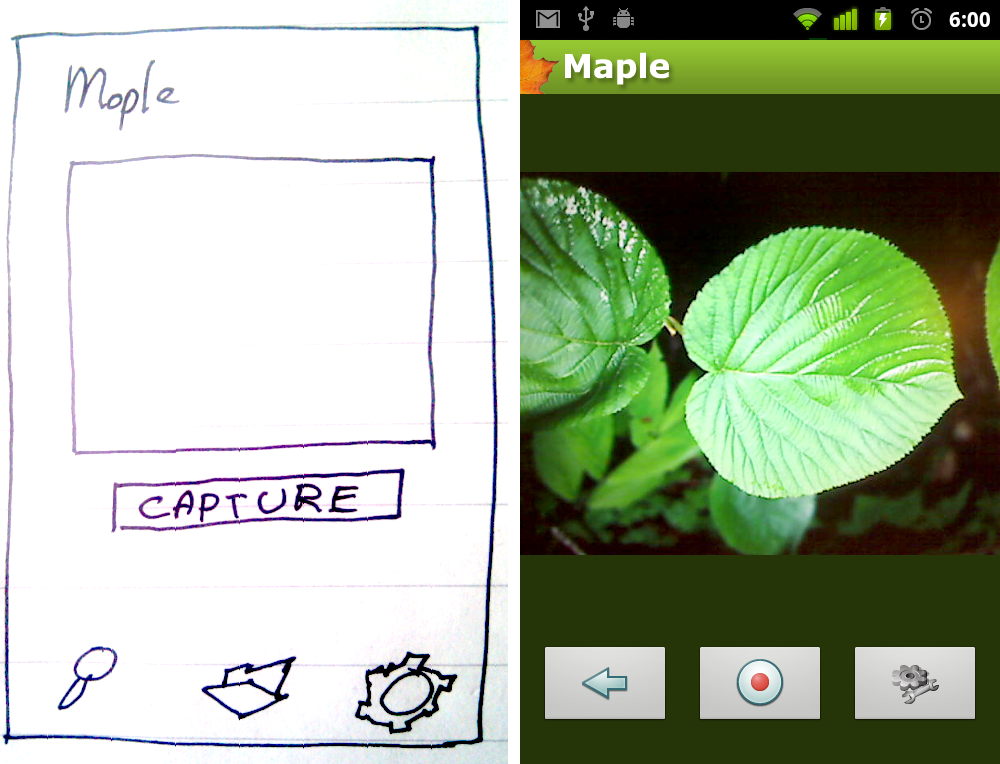 Maple
CAPTURE
6:00
Maple